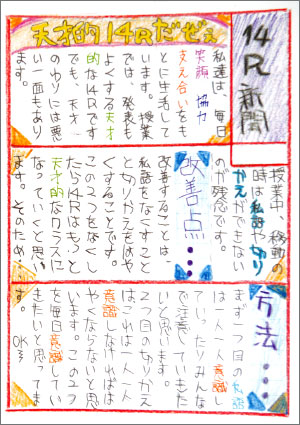 14R新聞
天才的14Rだぜぇ
私達は、毎日
笑顔 協力
支え合いをも
とに生活して
います。授業
では、発表も
よくする天才
的な14Rです
でも、天才
のわりには悪
い一面もあり
ます。
授業中、移動の
時は私語や切り
かえができない
のが残念です。
改善点…
改善することは
私語をなくすこと
と切りかえをはや
くすることです。
この2つをなくし
たら14Rはもっと
天才的なクラスに
なっていくと思い
ます。そのため
方法…
まず一つ目の私語
は一人一人意識し
ていったりみんな
で注意していきた
いと思います。
2つ目の切りかえ
はこれは一人一人
意識しなければは
やくならないと思
います。この2つ
を毎日意識して
きたいと思ってま
す。